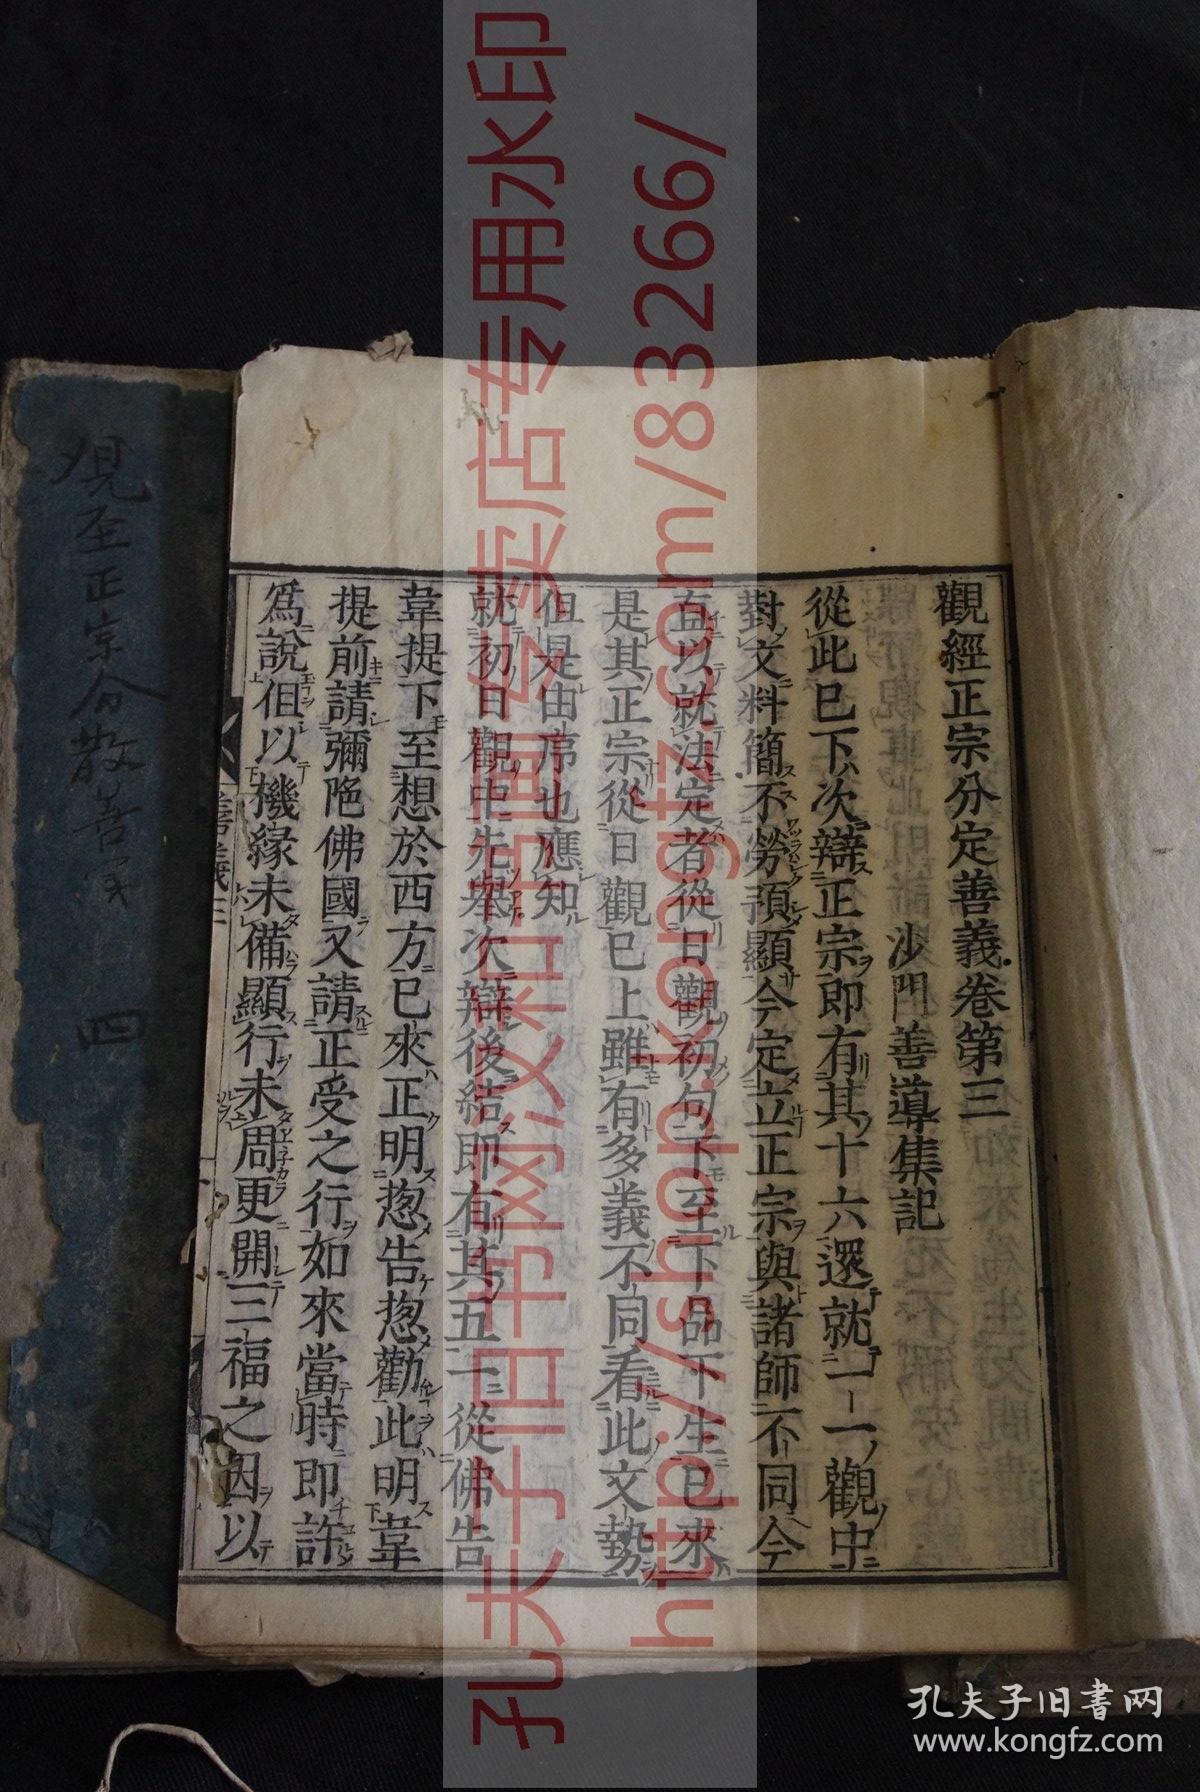 觀經正宗分定善義卷第三
沙門善導集記
從此已下次辯正宗即有其十六還就一一觀中
對文料簡不勞預顯今定立正宗與諸師不同今
直以就法定者從日觀初句下至下品下生已來
是其正宗從日觀已上雖有多義不同看此文勢
但是由序也應知
就初日觀中先舉次辯後結即有其五一從佛告
韋提下至想於西方已來正明揔告揔勸此明韋
提前請彌陁佛國又請正受之行如來當時即許
爲說但以機緣未備顯行未周更開三福之因以
善義三
正宗分散善
四
孔夫子旧书网汶和古画专卖店专用水印
http://shop.kongfz.com/83266/
孔夫子旧書网
www.kongfz.com